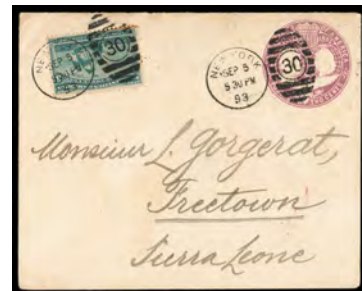 NEW YORK
SEP 5
30
NEW YORK
SEP 5
5 30 PM
93
30
Monsieur L. Gorgerat,
Freetown
Sierra Leone